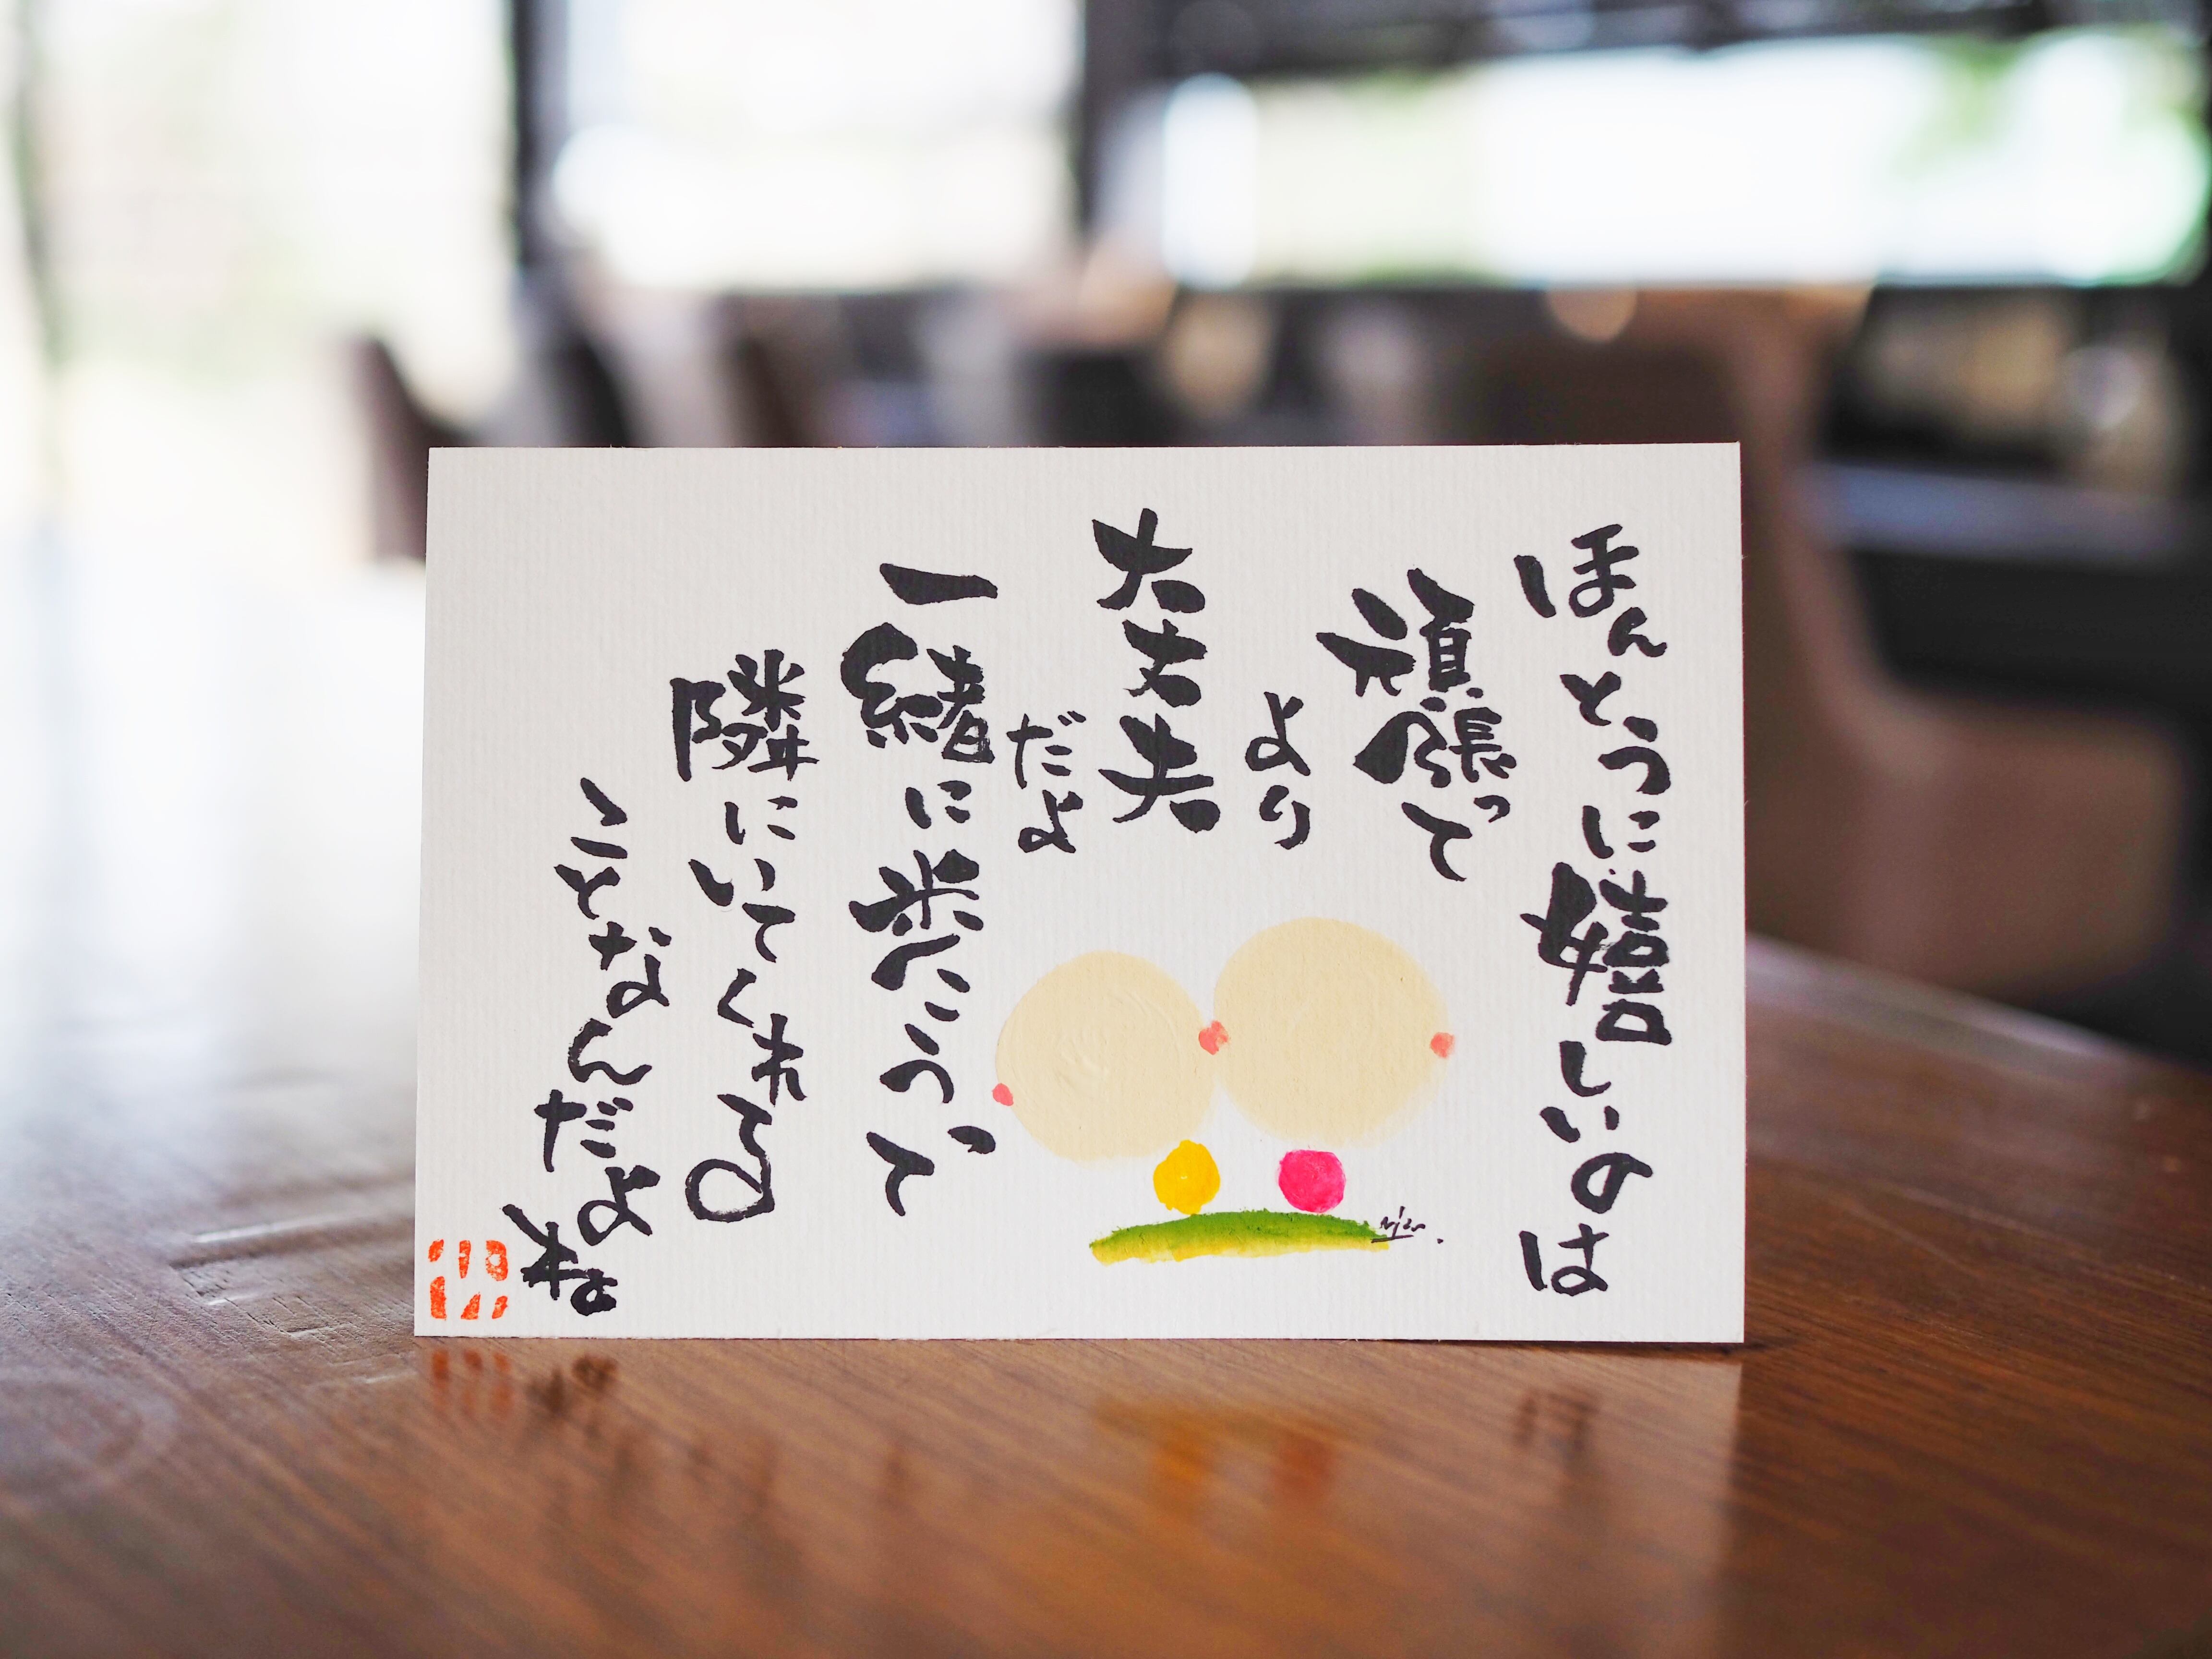 ほんとうに嬉しいのは
頑張って
より
大丈夫
だよ
一緒に歩こうって
隣にいてくれる
ことなんだよね